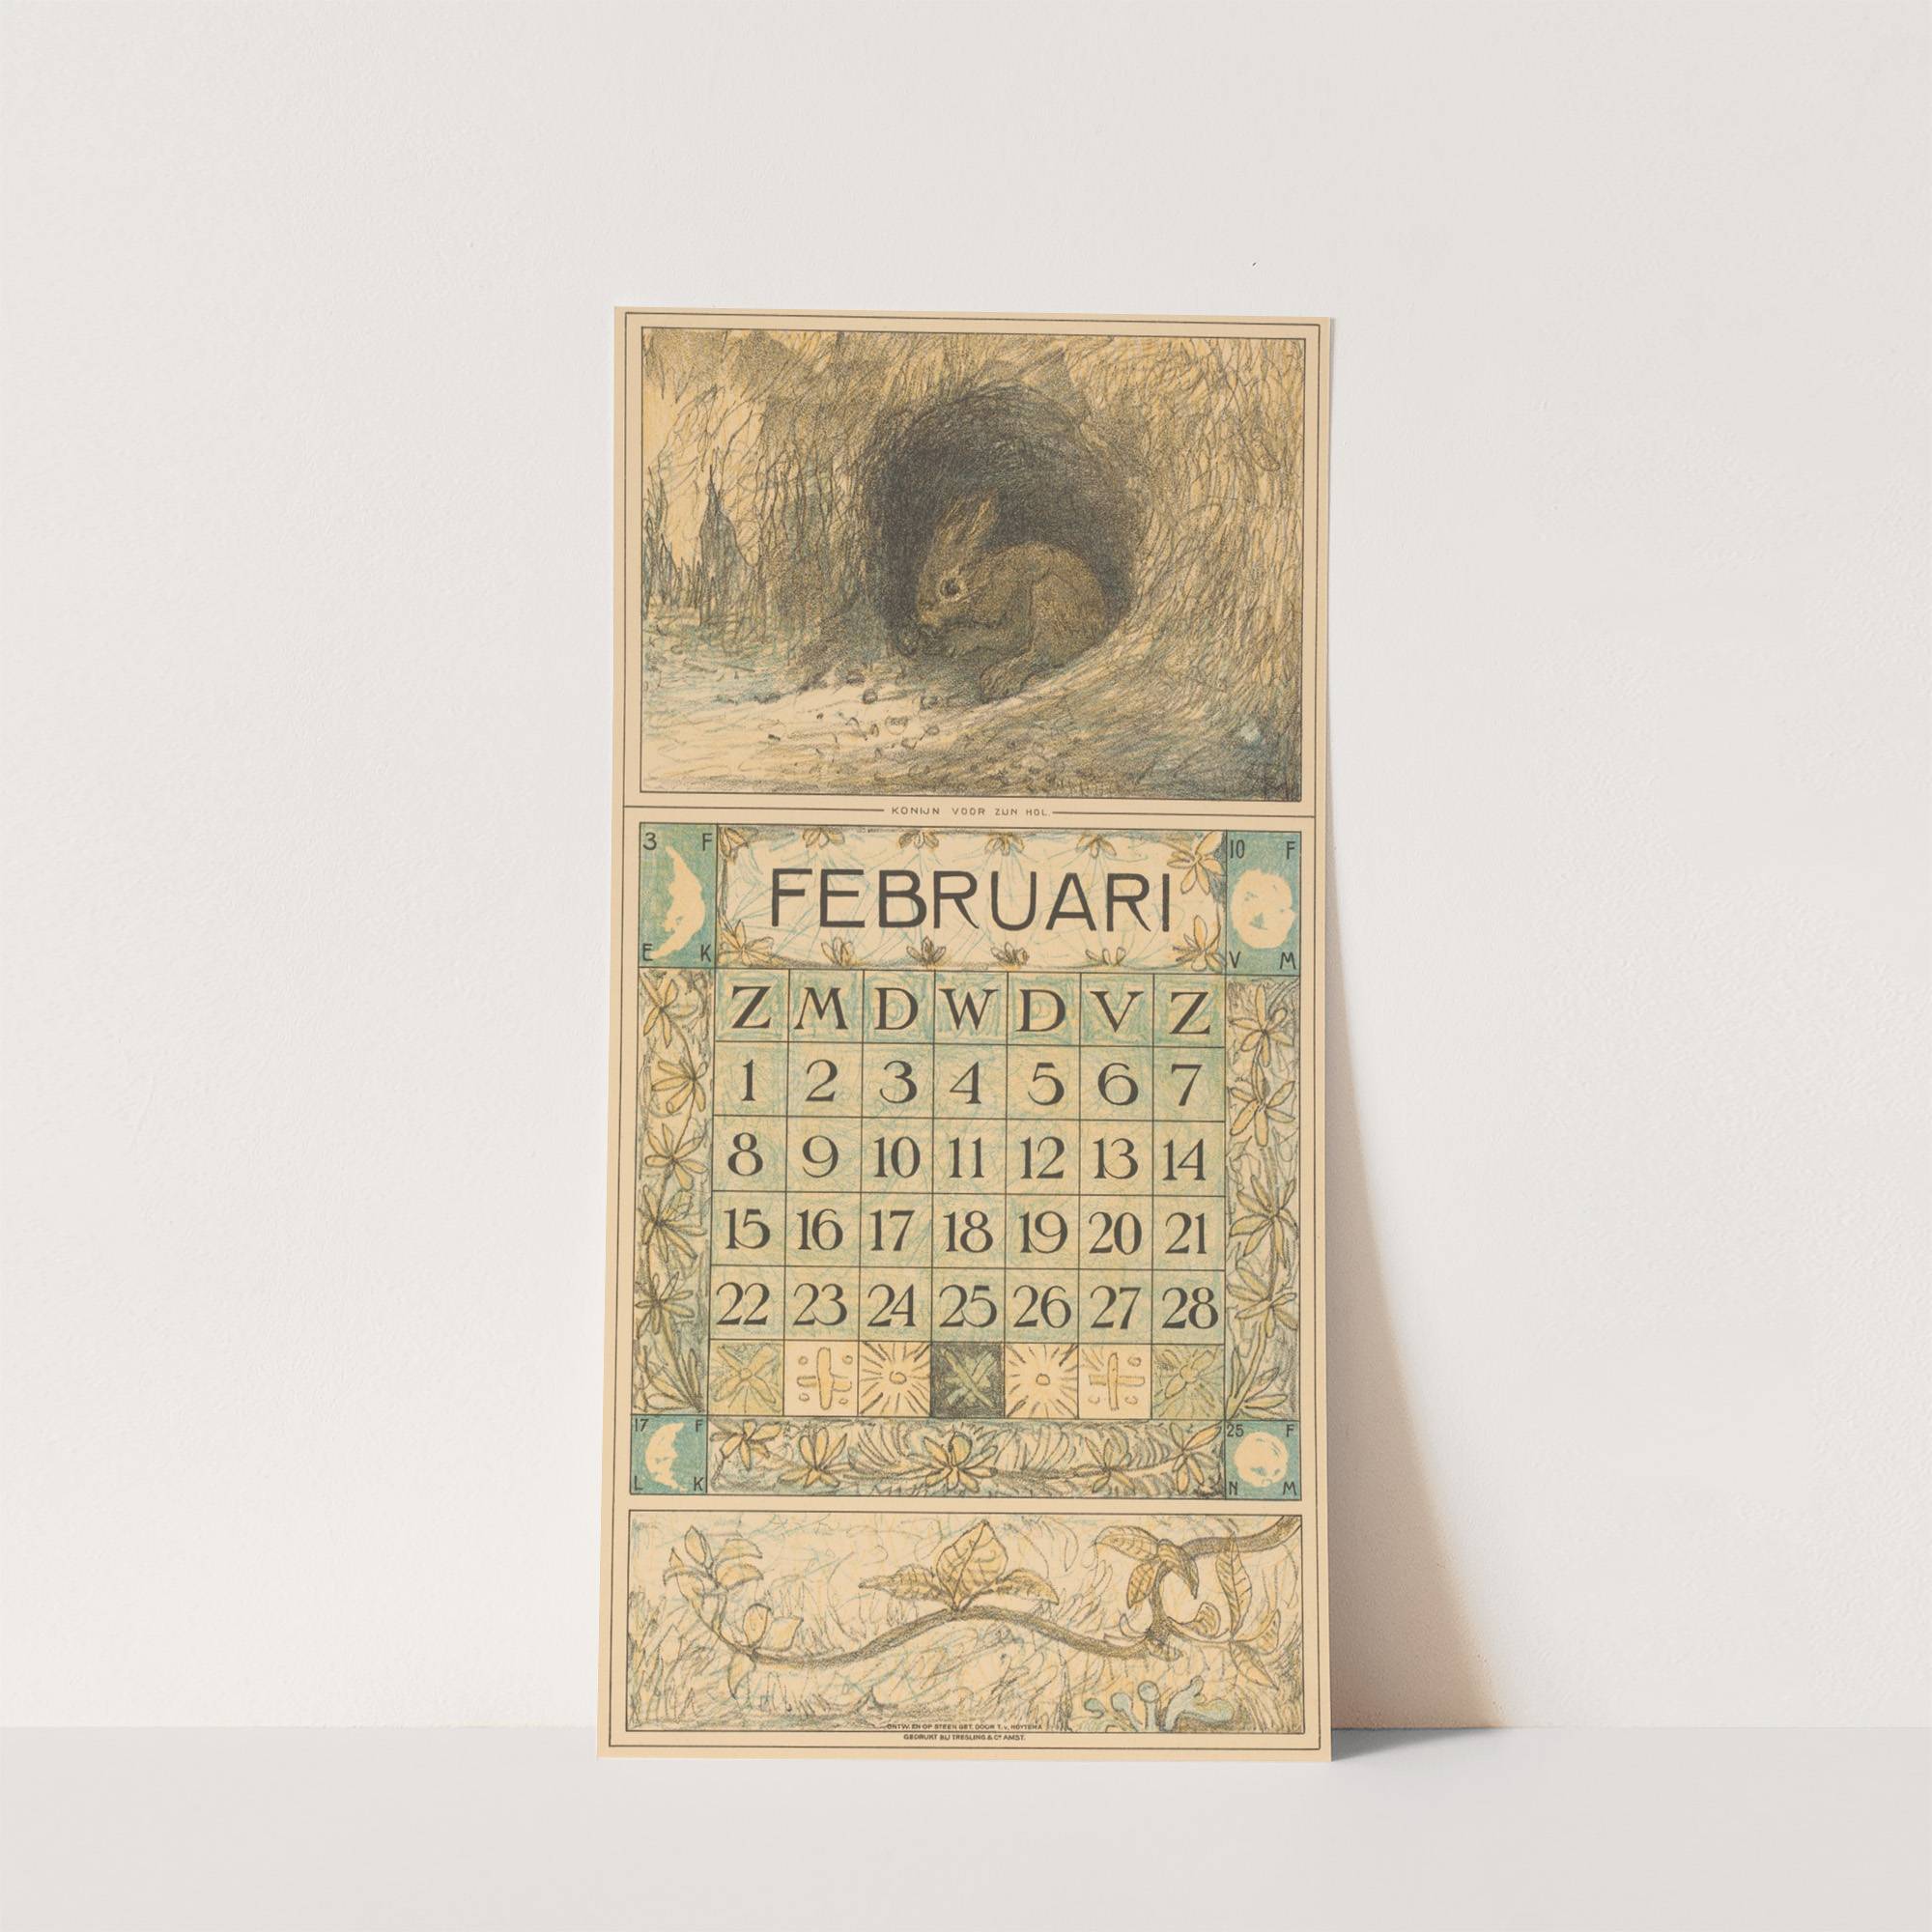 KONIJN VOOR ZIJN HOL.
3 F
E K
FEBRUARI
10 F
V M
Z M D W D V Z
1 2 3 4 5 6 7
8 9 10 11 12 13 14
15 16 17 18 19 20 21
22 23 24 25 26 27 28
17 F
L K
25 F
N M
ONTW. EN OP STEEN GET. DOOR T. v. HOYTEMA
GEDRUKT BIJ TRESLING & Co AMST.